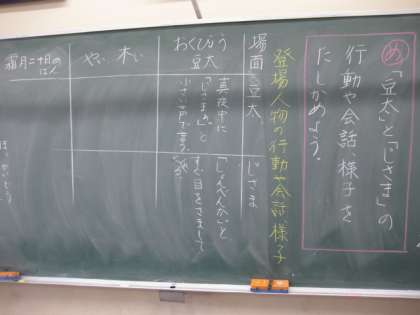 め
「豆太」と「じさま」の
行動や会話、様子を
たしかめよう。
登場人物の行動や会話、様子
場面
豆太
じさま
おくびょう
豆太
真夜中に
「じさまぁ」と
小さい声で言う。
「しょんべんか」と
すぐ目をさまして
やい、木ぃ
霜月二十日の
ばん